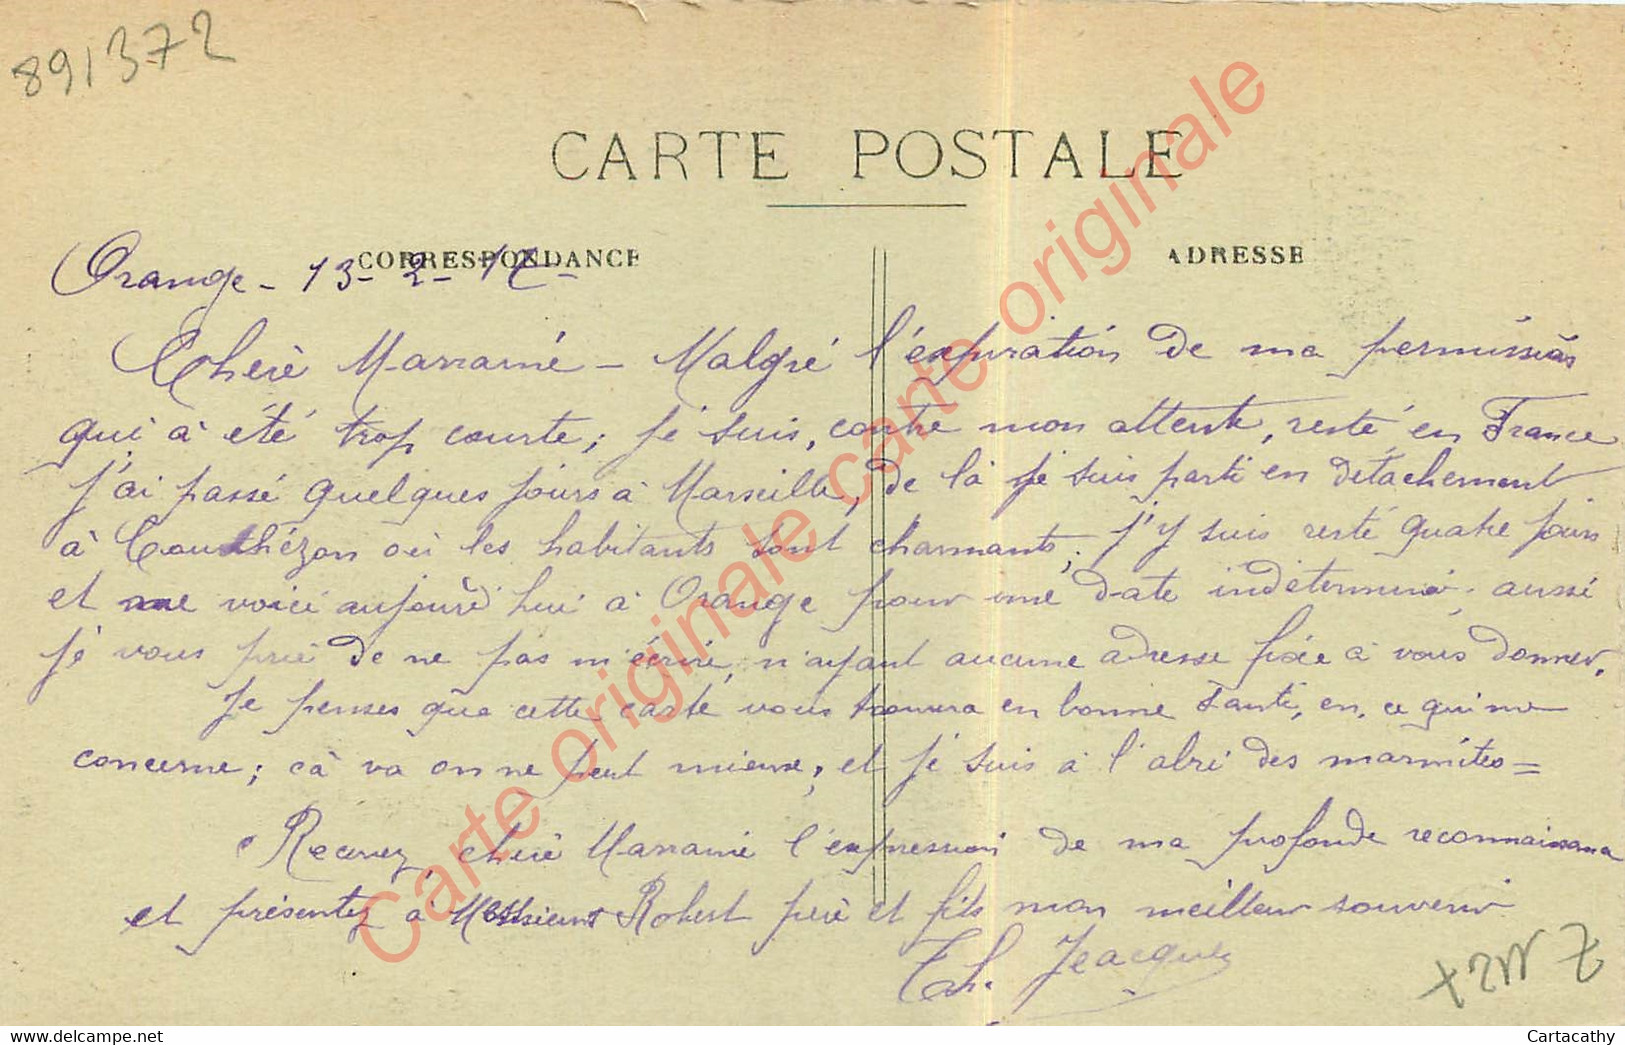 891372
CARTE POSTALE
CORRESPONDANCE
ADRESSE
Orange - 13 - 2 - 17 -
Chère Marraine - Malgré l'expiration de ma permission
qui à été trop courte ; je suis, contre mon attente, resté en France
j'ai passé quelques jours à Marseille, de là je suis parti en détachement
à Courthézon où les habitants sont charmants ; j'y suis resté quatre jours
et me voici aujourd'hui à Orange pour une date indéterminé ; aussi
je vous prie de ne pas m'écrire, n'ayant aucune adresse fixée à vous donner.
Je penses que cette carte vous trouvera en bonne santé, en ce qui me
concerne ; cà va on ne peut mieux, et je suis à l'abri des marmites =
Recevez, chère Marraine l'expression de ma profonde reconnaissance
et présentez à Messieurs Robert père et fils mon meilleur souvenir
Th. Jeacques
Carte originale carte originale
https://www.delcampe.net
Cartacathy